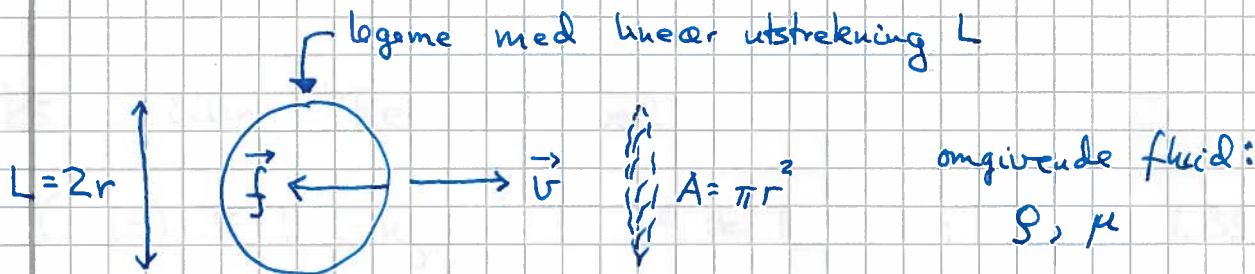 legeme med lineær utstrekning L
L=2r
f⃗
v⃗
A=πr²
omgivende fluid:
ρ, μ